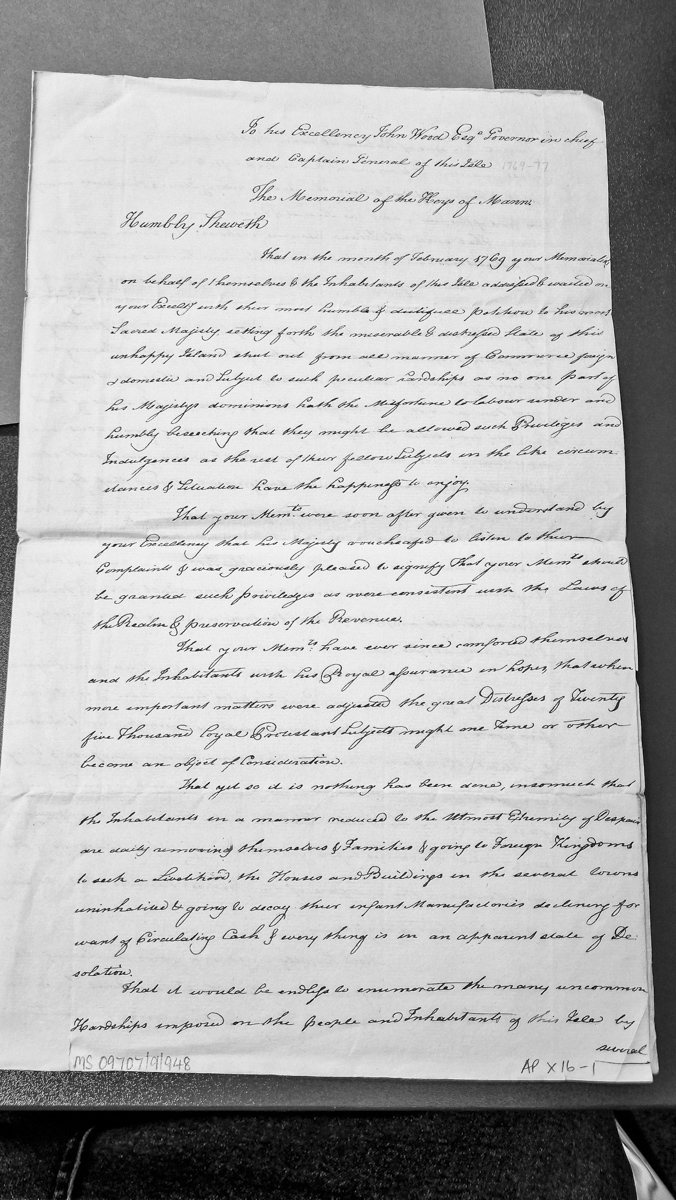 To his Excellency John Wood Esqr. Governor in chief
and Captain General of this Isle 1769-77
The Memorial of the Keys of Mann.
Humbly Sheweth
That in the month of February 1769 your Memorialts
on behalf of themselves & the Inhabitants of this Isle addressed & waited on
your Excellcy with their most humble & dutifull Petition to his most
Sacred Majesty setting forth the miserable & distressed State of this
unhappy Island shut out from all manner of Commerce foreign
& domestic and Subject to such peculiar hardships as no one part of
his Majestys dominions hath the Misfortune to labour under and
humbly beseeching that they might be allowed such Priviliges and
Indulgences as the rest of their fellow Subjects in the like circum
stances & Situation have the happiness to enjoy.
That your Memts. were soon after given to understand by
your Excellency that his Majesty vouchsafed to listen to their
Complaints & was graciously pleased to signify That your Memts should
be granted such priviledges as were consistent with the Laws of
the Realm & preservation of the Revenue.
That your Memts. have ever since comforted themselves
and the Inhabitants with his Royal assurance in hopes, that when
more important matters were adjusted the great Distresses of Twenty
five Thousand loyal Protestant Subjects might one Time or other
become an object of Consideration.
That yet so it is nothing has been done, insomuch that
the Inhabitants in a manner reduced to the Utmost Extremity of Despair
are daily removing themselves & Families & going to Foreign Kingdoms
to seek a Livelihood, the Houses and Buildings in the several towns
uninhabited & going to decay their infant Manufactories declining for
want of Circulating Cash & every thing is in an apparent state of De-
solation.
That it would be endless to enumerate the many uncommon
Hardships imposed on the people and Inhabitants of this Isle by
several
MS 09707/9/948
AP X16-1